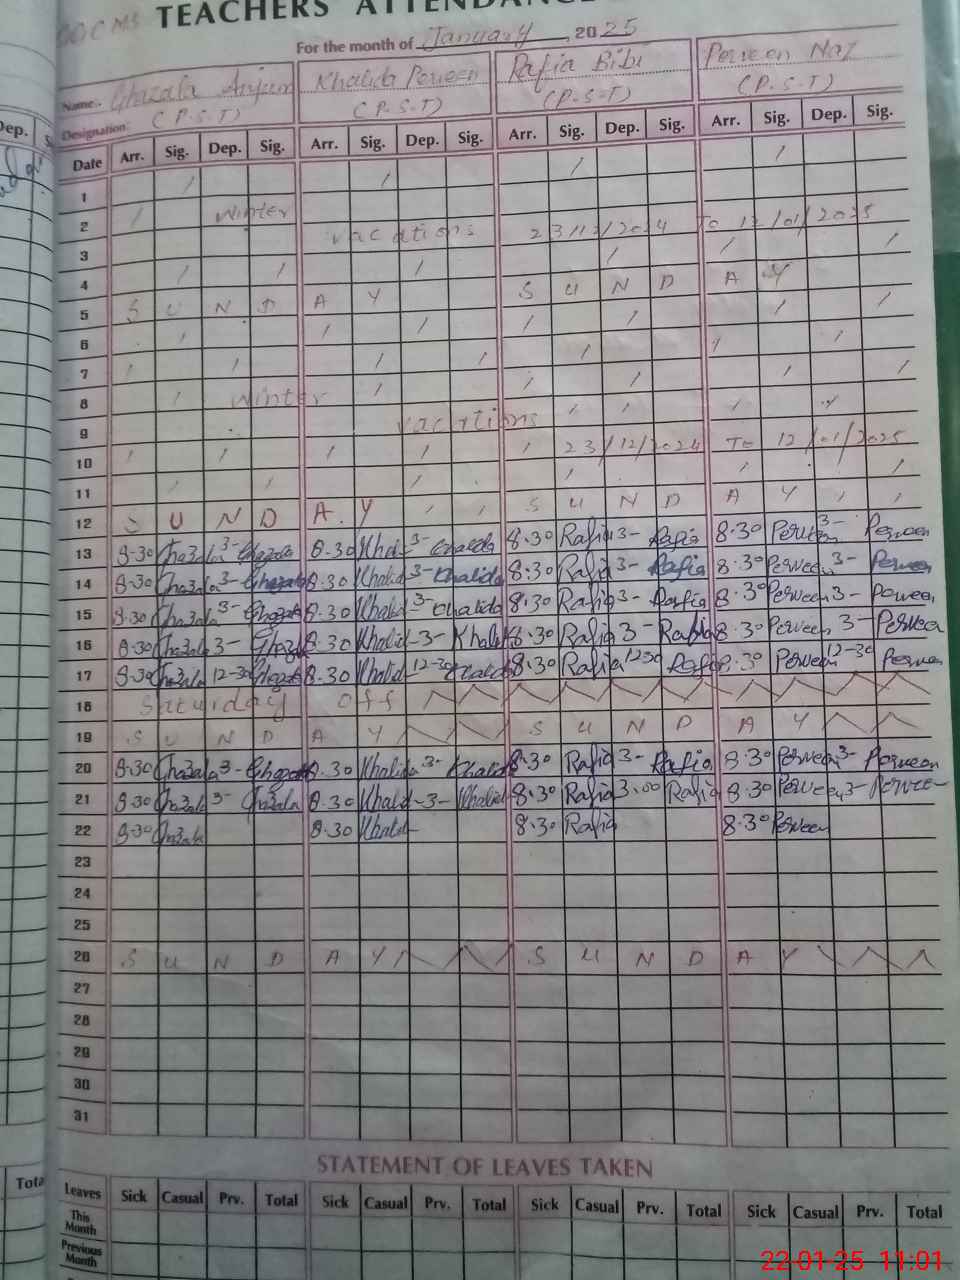 TEACHERS' ATTENDANC
For the month of January, 2025
Name.. Ghazala Anjum Khalida Perveen Rafia Bibi Perveen Naz
Designation: (P.S.T) (P.S.T) (P.S.T) (P.S.T)
Date Arr. Sig. Dep. Sig. Arr. Sig. Dep. Sig. Arr. Sig. Dep. Sig. Arr. Sig. Dep. Sig.
1
2 Winter vacations 23/12/2024 To 12/01/2025
3
4
5 S U N D A Y S U N D A Y
6
7
8 Winter
9 vacations
10 23/12/2024 To 12/01/2025
11
12 S U N D A Y S U N D A Y
13 8-30 Ghazala 3- Ghazala 8.30 Khalid 3- Khalida 8.30 Rafia 3- Rafia 8.30 Perveen 3- Perveen
14 8-30 Ghazala 3- Ghazala 8.30 Khalid 3- Khalida 8:30 Rafia 3- Rafia 8.30 Perveen 3- Perveen
15 8-30 Ghazala 3- Ghazala 8.30 Khalid 3- Khalida 8.30 Rafia 3- Rafia 8.30 Perveen 3- Perveen
16 8-30 Ghazala 3- Ghazala 8.30 Khalid 3- Khalid 8.30 Rafia 3- Rafia 8.30 Perveen 3- Perveen
17 8-30 Ghazala 12-30 Ghazala 8.30 Khalid 12-30 Khalida 8.30 Rafia 12-30 Rafia 8.30 Perveen 12-30 Perveen
18 Saturday Off
19 S U N D A Y S U N D A Y
20 8-30 Ghazala 3- Ghazala 8.30 Khalida 3- Khalida 8.30 Rafia 3- Rafia 8.30 Perveen 3- Perveen
21 8-30 Ghazala 3- Ghazala 8.30 Khalid 3- Khalid 8.30 Rafia 3.00 Rafia 8.30 Perveen 3- Perveen
22 8-30 Ghazala 8.30 Khalid 8.30 Rafia 8.30 Perveen
23
24
25
26 S U N D A Y S U N D A Y
27
28
29
30
31
STATEMENT OF LEAVES TAKEN
Leaves Sick Casual Prv. Total Sick Casual Prv. Total Sick Casual Prv. Total Sick Casual Prv. Total
This Month
Previous Month
Dep.
Tota
22-01-25 11:01